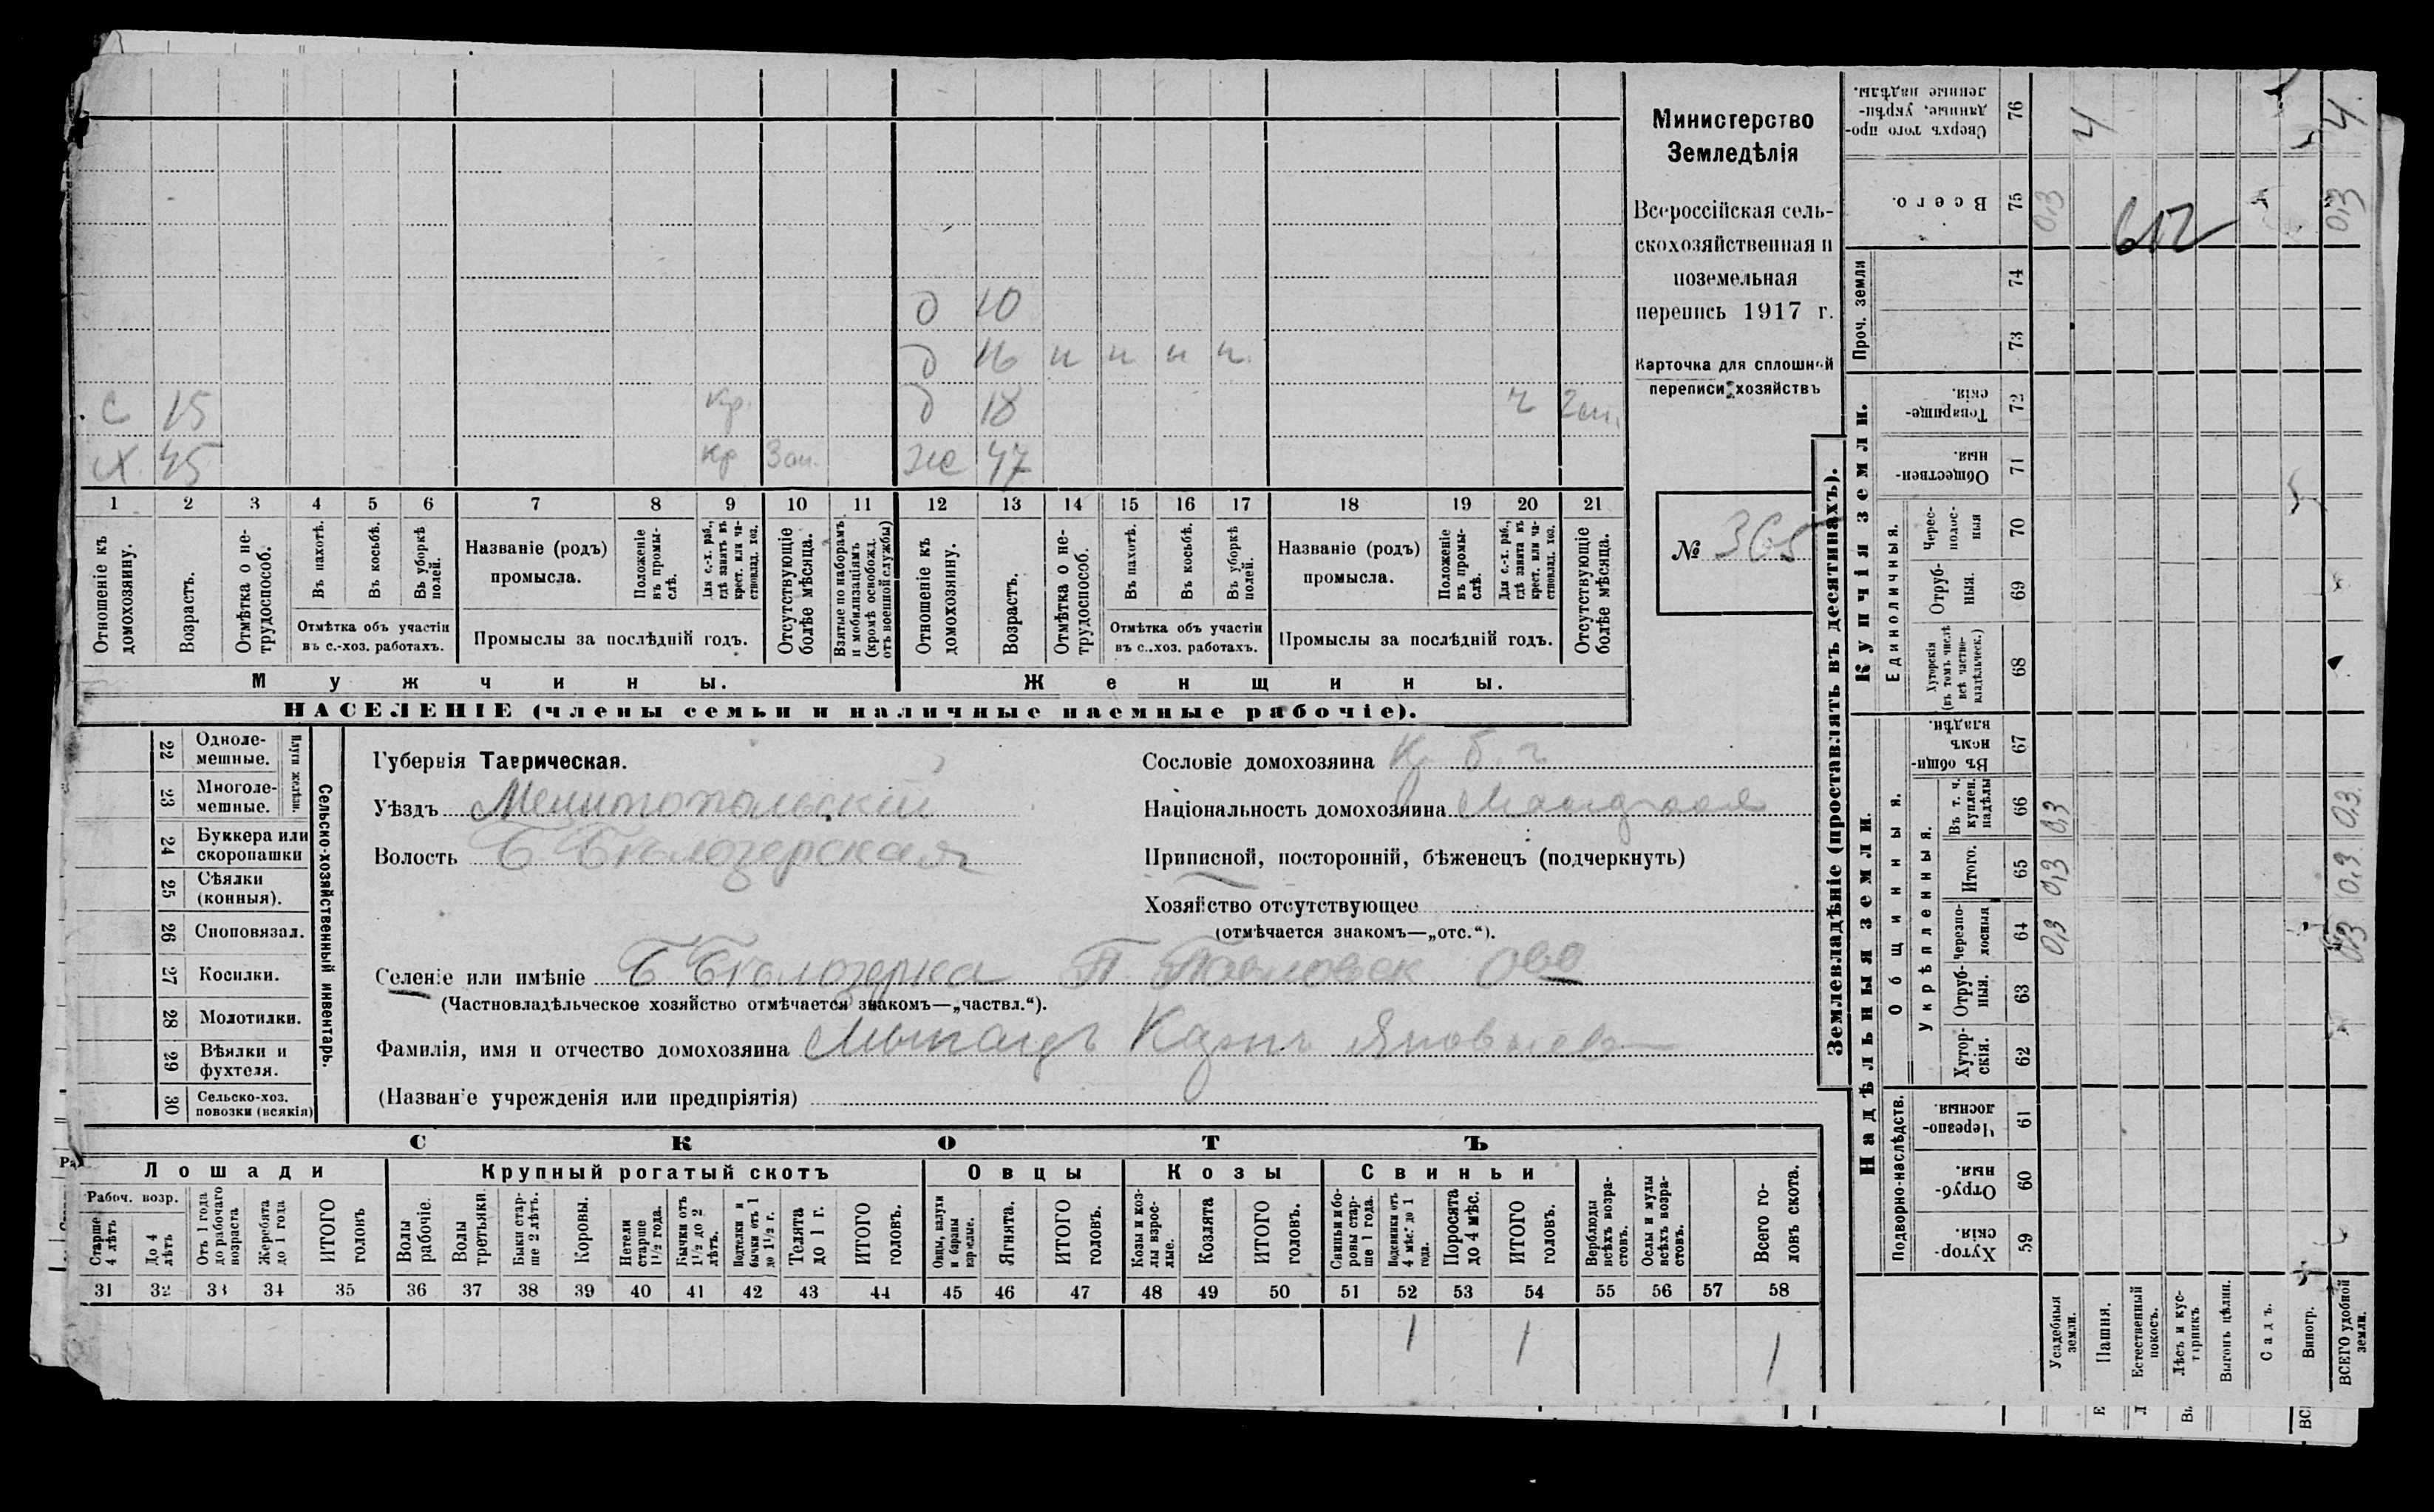 Министерство
Земледѣлія
Всероссійская сель-
скохозяйственная и
поземельная
перепись 1917 г.
Карточка для сплошной
переписи хозяйствъ
№ 365
д 10
д 16 и и и и
с 15 кр. д 18 2 2 м.
х. 45 кр 3 м. же 47
1 2 3 4 5 6 7 8 9 10 11 12 13 14 15 16 17 18 19 20 21
Отношеніе къ домохозяину.
Возрастъ.
Отмѣтка о не-трудоспособ.
Въ пахотѣ.
Въ косьбѣ.
Въ уборкѣ полей.
Отмѣтка объ участіи въ с.-хоз. работахъ.
Названіе (родъ) промысла.
Положеніе въ промы-слѣ.
Для с.-х. раб., гдѣ занятъ въ крест. или ча-стновлад. хоз.
Промыслы за послѣдній годъ.
Отсутствующіе болѣе мѣсяца.
Взятые по наборамъ и мобилизаціямъ (кромѣ освобожд. отъ военной службы)
Отношеніе къ домохозяину.
Возрастъ.
Отмѣтка о не-трудоспособ.
Въ пахотѣ.
Въ косьбѣ.
Въ уборкѣ полей.
Отмѣтка объ участіи въ с.-хоз. работахъ.
Названіе (родъ) промысла.
Положеніе въ промы-слѣ.
Для с.-х. раб., гдѣ занята въ крест. или ча-стновлад. хоз.
Промыслы за послѣдній годъ.
Отсутствующіе болѣе мѣсяца.
Мужчины. Женщины.
НАСЕЛЕНІЕ (члены семьи и наличные наемные рабочіе).
22 Одноле-мешные.
23 Многоле-мешные.
Плуги желѣзн.
24 Буккера или скоропашки
25 Сѣялки (конныя).
26 Сноповязал.
27 Косилки.
28 Молотилки.
29 Вѣялки и фухтеля.
30 Сельско-хоз. повозки (всякія)
Сельско-хозяйственный инвентарь.
Губернія Таврическая.
Уѣздъ Мелитопольскій
Волость Б Бѣлозерская
Сословіе домохозяина
Національность домохозяина
Приписной, посторонній, бѣженецъ (подчеркнуть)
Хозяйство отсутствующее
(отмѣчается знакомъ—„отс.“).
Селеніе или имѣніе Б Бѣлозерка П Павловск ово
(Частновладѣльческое хозяйство отмѣчается знакомъ—„частвл.“).
Фамилія, имя и отчество домохозяина
(Названіе учрежденія или предпріятія)
СКОТЪ
Лошади Крупный рогатый скотъ Овцы Козы Свиньи
Рабоч. возр.
Старше 4 лѣтъ
До 4 лѣтъ
Отъ 1 года до рабочаго возраста
Жеребята до 1 года
ИТОГО головъ
Волы рабочіе.
Волы третьяки.
Быки стар-ше 2 лѣтъ.
Коровы.
Нетели старше 1½ года.
Бычки отъ 1½ до 2 лѣтъ.
Подтелки и бычки отъ 1 до 1½ г.
Телята до 1 г.
ИТОГО головъ.
Овцы, валухи и бараны взрослые.
Ягнята.
ИТОГО головъ.
Козы и коз-лы взрос-лые.
Козлята
ИТОГО головъ.
Свиньи и бо-ровы стар-ше 1 года.
Подсвинки отъ 4 мѣс. до 1 года.
Поросята до 4 мѣс.
ИТОГО головъ.
Верблюды всѣхъ возра-стовъ.
Ослы и мулы всѣхъ возра-стовъ.
Всего го-ловъ скота.
31 32 33 34 35 36 37 38 39 40 41 42 43 44 45 46 47 48 49 50 51 52 53 54 55 56 57 58
1 1 1
Землевладѣніе (проставлять въ десятинахъ).
Надѣльныя земли. Купчія земли. Проч. земли
Подворно-наслѣдств.
Общинныя.
Укрѣпленныя.
Единоличныя.
Хутор-скія. 59
Отруб-ныя. 60
Черезпо-лосныя. 61
Хутор-скія. 62
Отруб-ныя. 63
Черезпо-лосныя 64
Итого. 65
Въ т. ч. куплен. надѣлы 66
Въ общин-номъ владѣн. 67
Хуторскія (въ томъ числѣ всѣ частно-владѣльческ.) 68
Отруб-ныя. 69
Черес-полос-ныя 70
Обществен-ныя. 71
Товарище-скія. 72
73
74
Всего. 75
Сверхъ того про-данные, укрѣп-ленные надѣлы. 76
Усадебныя земли. 0,3 0,3 0,3 0,3
Пашня. 4
Естественный покосъ.
Лѣсъ и кус-тарникъ.
Выгонъ цѣлин.
Садъ.
Виногр.
ВСЕГО удобной земли. 0,3 0,3 0,3. 0,3 4.
612